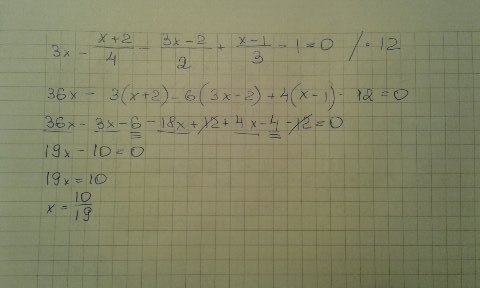 3x - (x+2)/4 - (3x-2)/2 + (x-1)/3 - 1 = 0 / · 12
36x - 3(x+2) - 6(3x-2) + 4(x-1) - 12 = 0
36x - 3x - 6 - 18x + 12 + 4x - 4 - 12 = 0
19x - 10 = 0
19x = 10
x = 10/19